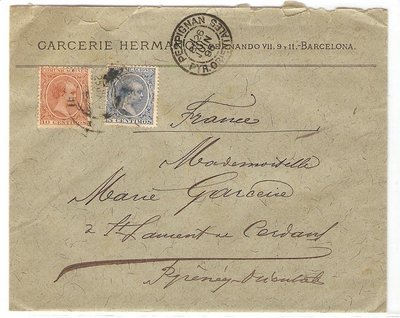 GARCERIE HERMA FERNANDO VII. 9 Y 11.-BARCELONA.
PERPIGNAN
PYR. ORIENTALES
10 CENTIMOS
CENTIMOS
France
Mademoiselle
Marie Garcerie
à St Laurent de Cerdans
Pyrénées-Orientales